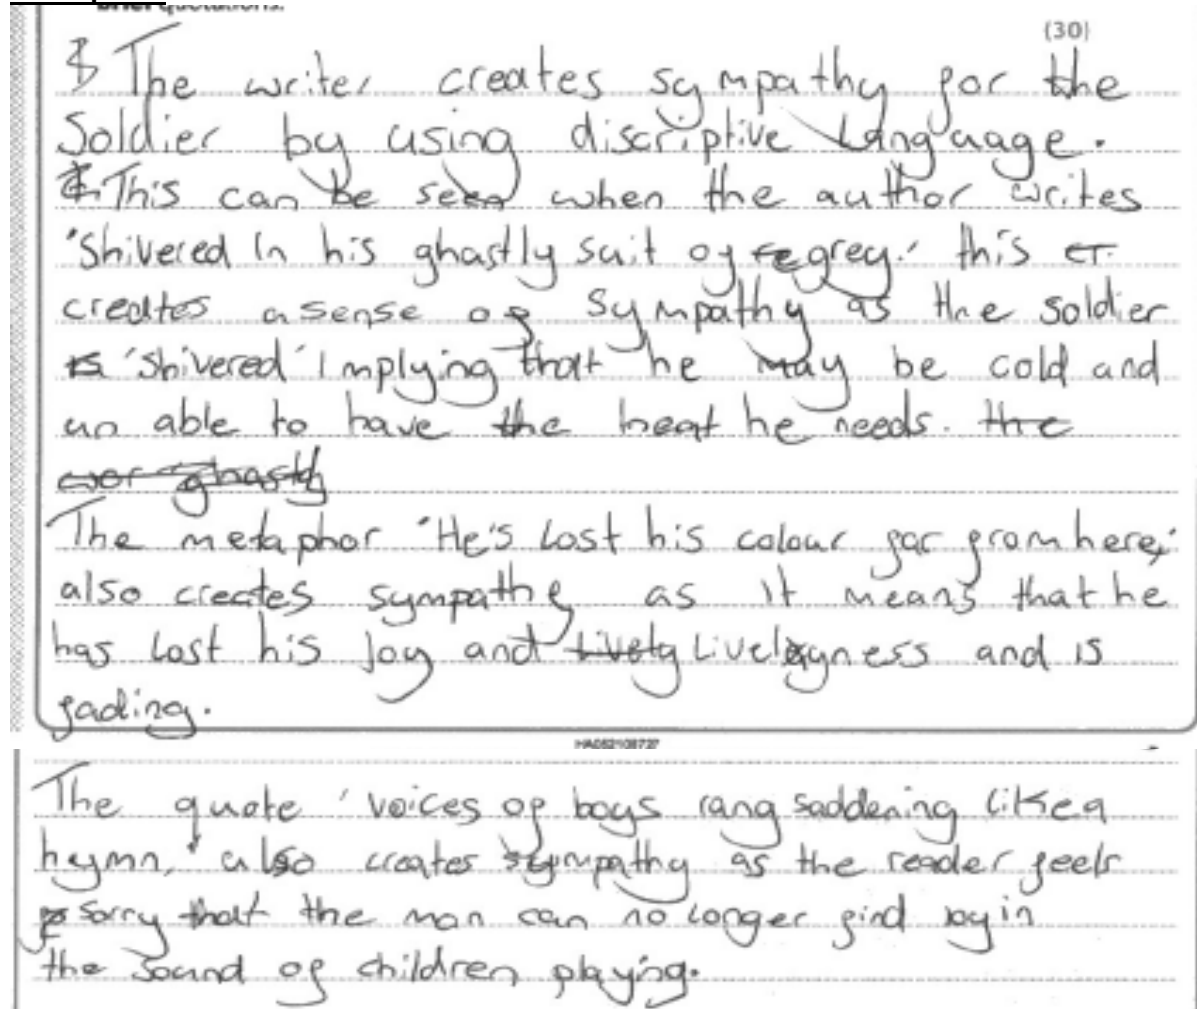 brief quotations.
(30)
The writer creates sympathy for the
Soldier by using discriptive language.
This can be seen when the author writes
'Shivered in his ghastly suit of grey.' this
creates a sense of sympathy as the soldier
'shivered' implying that he may be cold and
un able to have the heat he needs. the
wor ghastly
The metaphor 'He's lost his colour far from here,'
also creates sympathy as it means that he
has lost his joy and lively Livelyness and is
fading.
HA052108727
The quote 'voices of boys rang saddening like a
hymn,' also creates sympathy as the reader feels
sorry that the man can no longer find joy in
the sound of children playing.